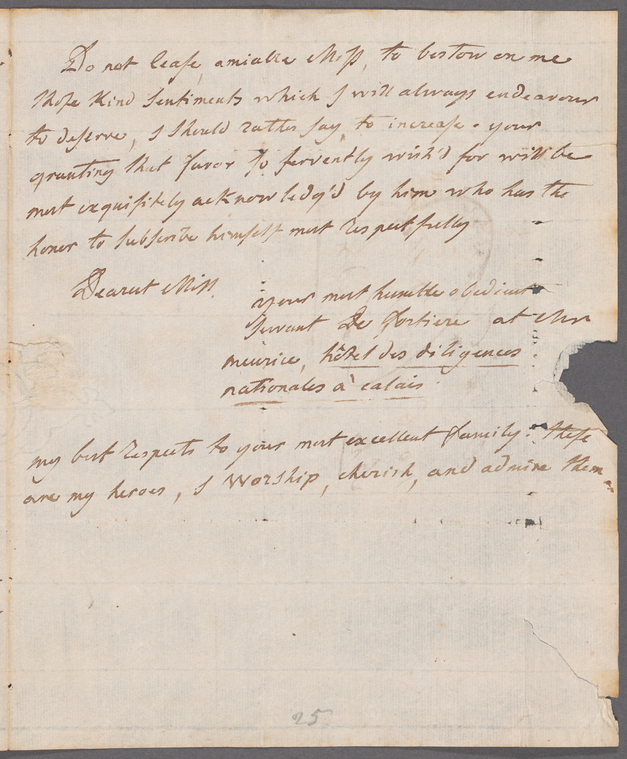 Do not cease, amiable Miss, to bestow on me
those kind sentiments which I will always endeavour
to deserve, I should rather say, to increase. your
granting that favor so fervently wish'd for will be
most exquisitely acknowledg'd by him who has the
honor to subscribe himself most respectfully
Dearest Miss.
your most humble obedient
Servant De fortiere at Mr
meurice, hôtel des diligences
nationales à calais.
my best respects to your most excellent family. These
are my heroes, I worship, cherish, and admire them.
25